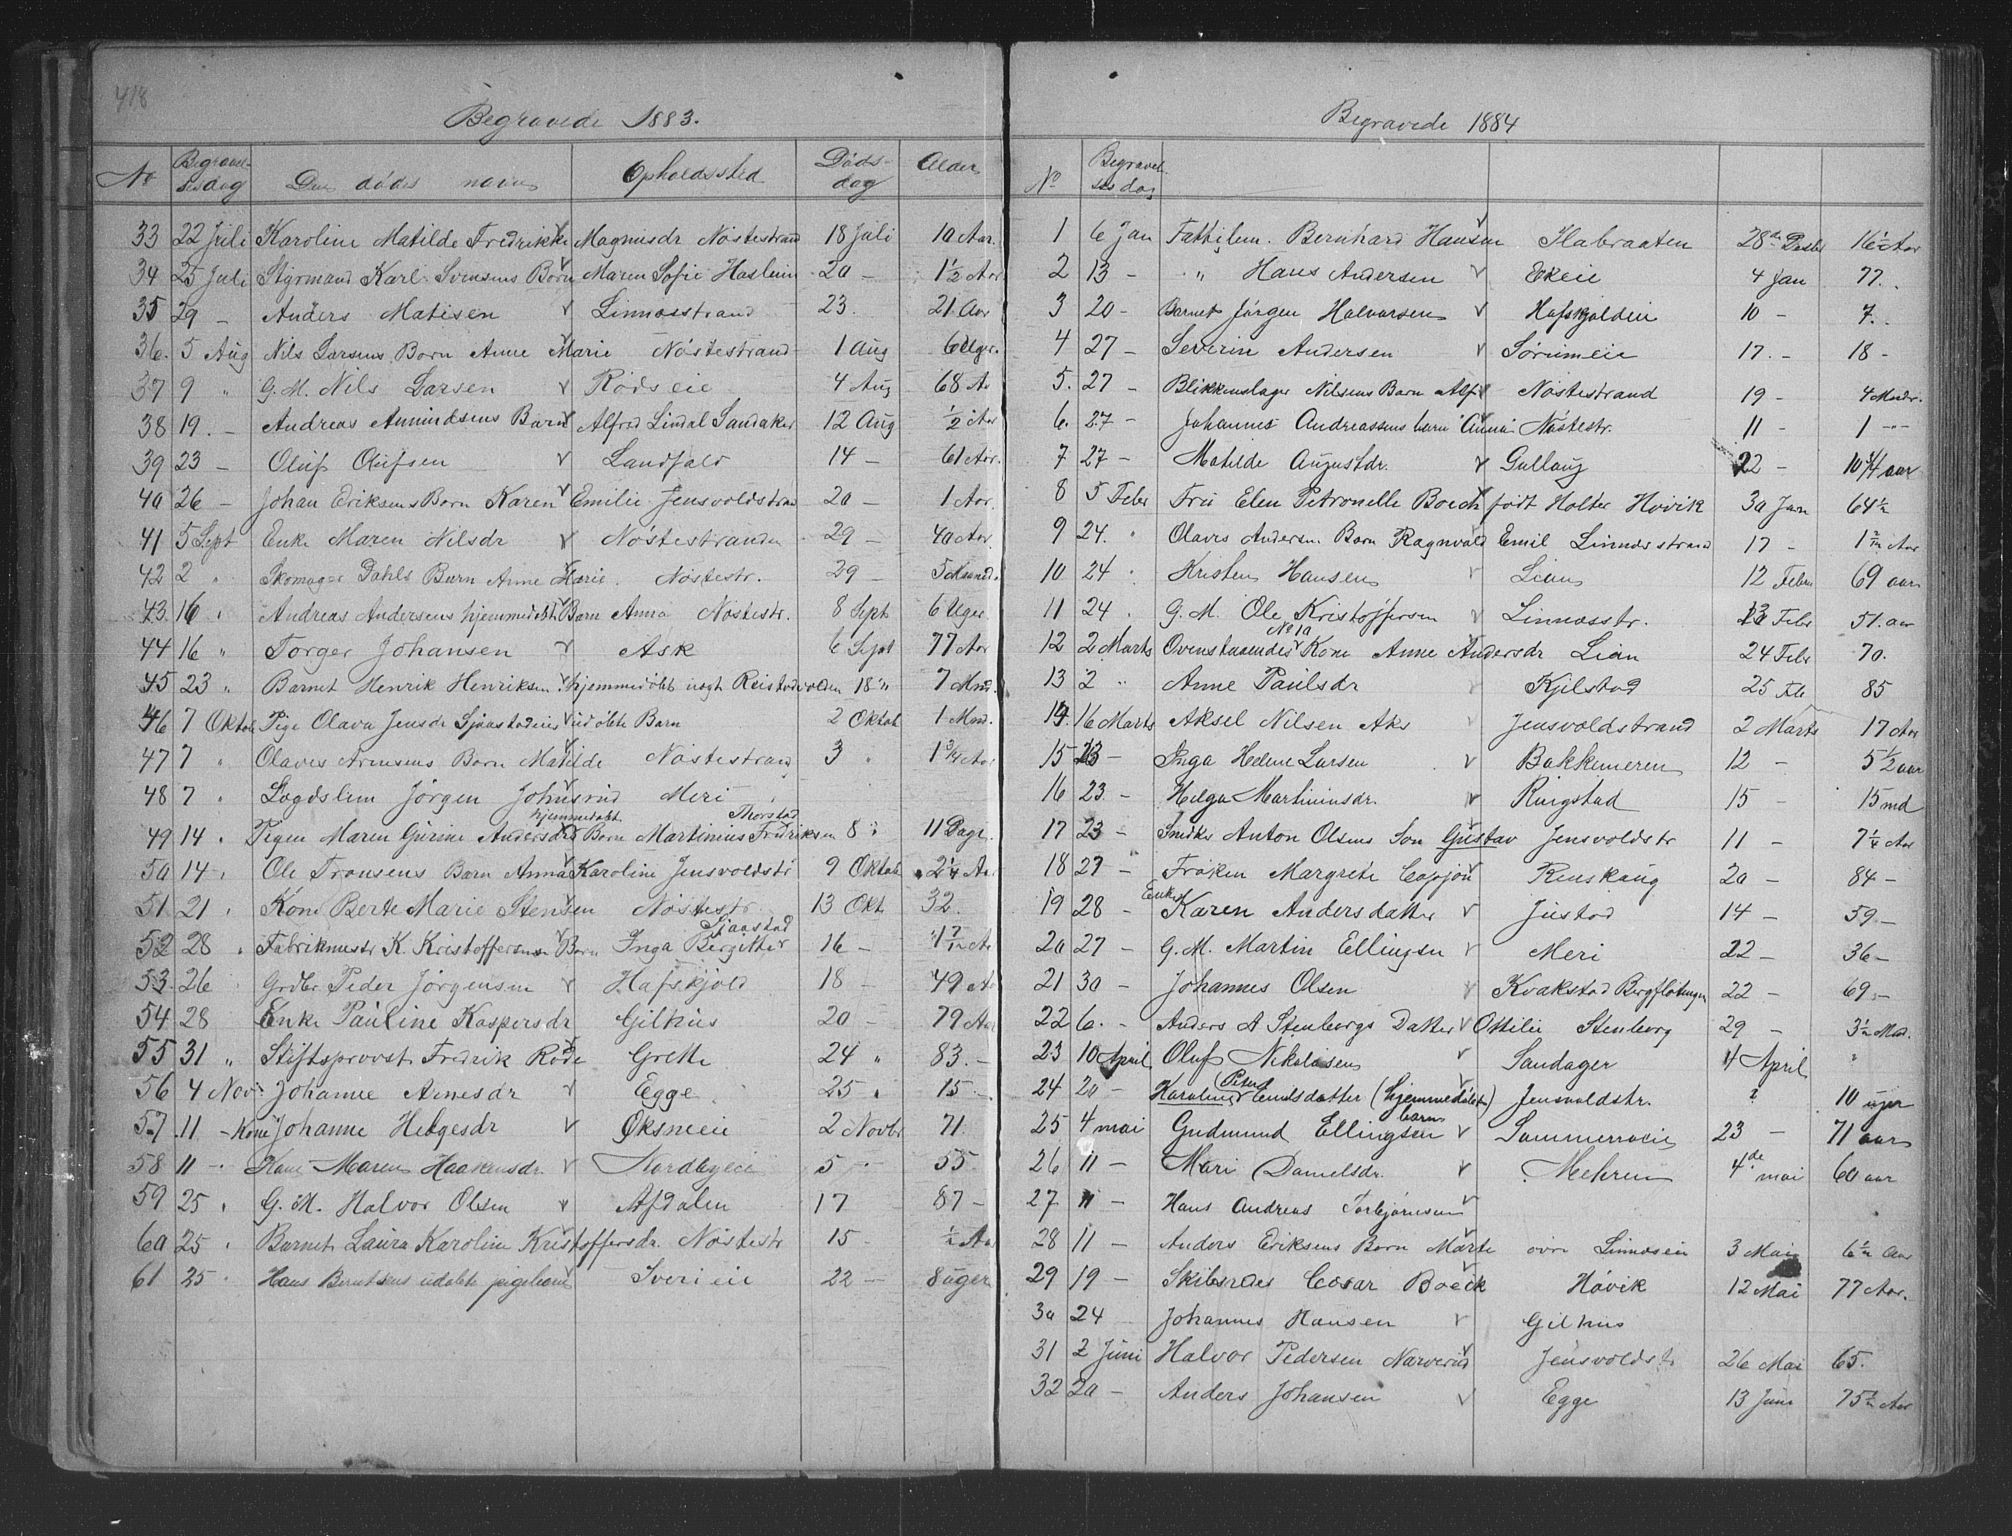 418
Begravede 1883.
No Begravelsesdag Den dødes navn Opholdssted Dødsdag Alder
33 22 Juli Karoline Matilde Fredrikke Magnusdr Nøstestrand 18 Juli 10 Aar.
34 25 Juli Styrmand Karl Svensens Barn Maren Sofie Haslum 20 — 1½ Aar
35 29 — Anders Matisen Linnæsstrand 23. 21 Aar
36. 5 Aug Nils Larsens Barn Anne Marie Nøstestrand 1 Aug 6 Uger.
37 9 " G. M. Nils Larsen Rødseie 4 Aug 68 Aar
38 19. — Andreas Amundsens Barn Alfred Lindal Sandaker 12 Aug ½ Aar
39 23 — Oluf Olufsen Landfald 14 — 61 Aar.
40 26 — Johan Eriksens Barn Karen Emilie Jensvoldstrand 20 — 1 Aar.
41 5 Sept Enke Maren Nilsdr Nøstestranden 29 — 40 Aar.
42 2 " Skomager Dahls Barn Anne Marie. Nøstestr. 29 — 5 Maaned.
43. 16 " Andreas Andersens hjemmedøbt Barn Anna Nøstestr. 8 Sept 6 Uger
44 16 " Torger Johansen Ask 6 Sept 77 Aar
45 23 " Barnet Henrik Henriksen hjemmedøbt uægt Reistadvolden 18 " 7 Mnd.
46 7 Oktob Pige Olava Jensdr Sjaastadeies udøbte Barn 2 Oktob 1 Mnd.
47 7 " Olaves Arnesens Barn Matilde Nøstestrand 3 " 1 3/4 Aar
48 7 " Lægdslem Jørgen Johnsrud Meri
49 14 " Pigen Maren Gurine Andersdrs hjemmedøbt Barn Martinius Fredriksen Thorstad 8 " 11 Dage.
50 14 " Ole Tronsens Barn Anna Karoline Jensvoldstr 9 Oktob 2¼ Aar
51 21 " Kone Berte Marie Stensen Nøstestr. 13 Okt 32.
52 28 " Fabrikmestr K. Kristoffersens Barn Inga Bergitte Sjaastad 16 — 1 7/12 Aar
53. 26 Grdbr Peder Jørgensen Hafskjold 18 — 49 Aar
54 28 Enke Pauline Kaspersdr Gilhus 20 — 79 Aar
55 31 " Stiftsprovst Fredrik Rode Grette 24 " 83. —
56 4 Nov. Johanne Arnesdr Egge 25 " 15 —
57 11 — Kone Johanne Helgesdr Øksneeie 2 Novbr 71.
58 11 — Kone Maren Haakensdr. Nordbyeie 5 — 55
59 25 " G. M. Halvor Olsen Afdalen 17 87 —
60 25 " Barnet Laura Karoline Kristoffersdr. Nøstestr 15 — ½ Aar
61 25 " Hans Berntsens udøbte pigebarn Sverieie 22 — 8 uger
Begravede 1884
No Begravelsesdag
1 6 Jan Fattiglem. Bernhard Hansen Ilabraaten 28de Decbr 16½ Aar
2 13 — " Hans Andersen Ekeie 4 Jan 77.
3 20 — Barnet Jørgen Halvorsen Hafskjoldeie 10 — 7.
4 27 — Severin Andersen Sørumeie 17. — 18 —
5. 27 — Blikkenslager Nilsens Barn Alf Nøstestrand 19 — 4 Mndr.
6. 27 — Johannes Andreassens barn Anna Nøstestr. 11 — 1 —
7 27 — Matilde Augustdr. Gullaug 22 — 10 ¼ aar
8 5 Febr Fru Elen Petronelle Boeck født Holter Høvik 30 Jan 64½
9 24. " Olaves Andersens Barn Ragnvald Emil Linnæsstrand 17 — 1 2/12 Aar
10 24 " Kristen Hansen Lian 12 Febr 69 aar
11 24 " G. M. Ole Kristoffersen Linnæsstr. 13 Febr 51. aar
12 2 Marts Ovenstaaendes No 10 Kone Anne Andersdr Lian 24 Febr 70.
13 2 " Anne Paulsdr Kjelstad 25 Feb 85
14. 16 Marts Aksel Nilsen Aker Jensvoldstrand 2 Marts 17 Aar
15 23 — Inga Helene Larsen Bakkemeren 12 — 5½ aar
16 23 — Helga Martiniusdr. Ringstad 15 — 15 md
17 23 — Snedker Anton Olsens Søn Gustav Jensvoldstr 11 — 7¼ Aar
18 27 — Frøken Margrete Coppjon Renskaug 20 — 84 —
19 28 — Enke Karen Andersdatter Justad 14 — 59. —
20 27 — G. M. Martin Ellingsen Meri 22 — 36 —
21 30 — Johannes Olsen Kvakstad Bergfløtningen 22 — 69. —
22 6. — Anders A Stenborgs Datter Ottilie Stenborg 29 — 3½ Md.
23 10 April Oluf Nikolaisen Sandager 4 April "
24 20 — Karoline Petra Emilsdatter (hjemmedøbt barn) Jensvoldstr. ? 10 uger
25 4 mai Gudmund Ellingsen Sommerroeie 23 — 71 aar
26 11 — Mari Danielsdr. Mehren 4de mai 60 aar
27 11 — Hans Andreas Torbjørnsen
28 11 — Anders Eriksens Barn Marte øvre Linnæseie 3 Mai 6½ Aar
29 19 — Skibsreder Cæsar Boeck Høvik 12 Mai 77 Aar.
30 24 Johannes Hansen Gilhus
31 2 Juni Halvor Pedersen Narverud Jensvoldstr 26 Mai 65.
32 20 — Anders Johansen Egge 13 Juni 75½ Aar